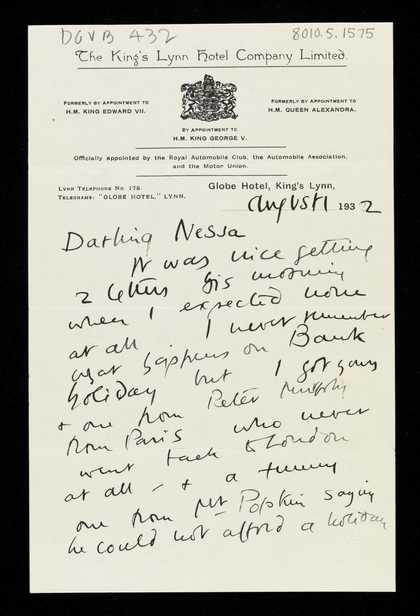 DGVB 432
8010.5.1575
The King's Lynn Hotel Company Limited.
FORMERLY BY APPOINTMENT TO
H.M. KING EDWARD VII.
FORMERLY BY APPOINTMENT TO
H.M. QUEEN ALEXANDRA.
BY APPOINTMENT TO
H.M. KING GEORGE V.
Officially appointed by the Royal Automobile Club, the Automobile Association,
and the Motor Union.
LYNN TELEPHONE No. 178.
TELEGRAMS: "GLOBE HOTEL," LYNN.
Globe Hotel, King's Lynn,
August 1 1932
Darling Nessa
It was nice getting
2 letters this morning
when I expected none
at all I never remember
what happens on Bank
holiday but I got yours
+ one from Peter Murphy
from Paris who never
went back to London
at all - + a funny
one from Mr Popkin saying
he could not afford a holiday